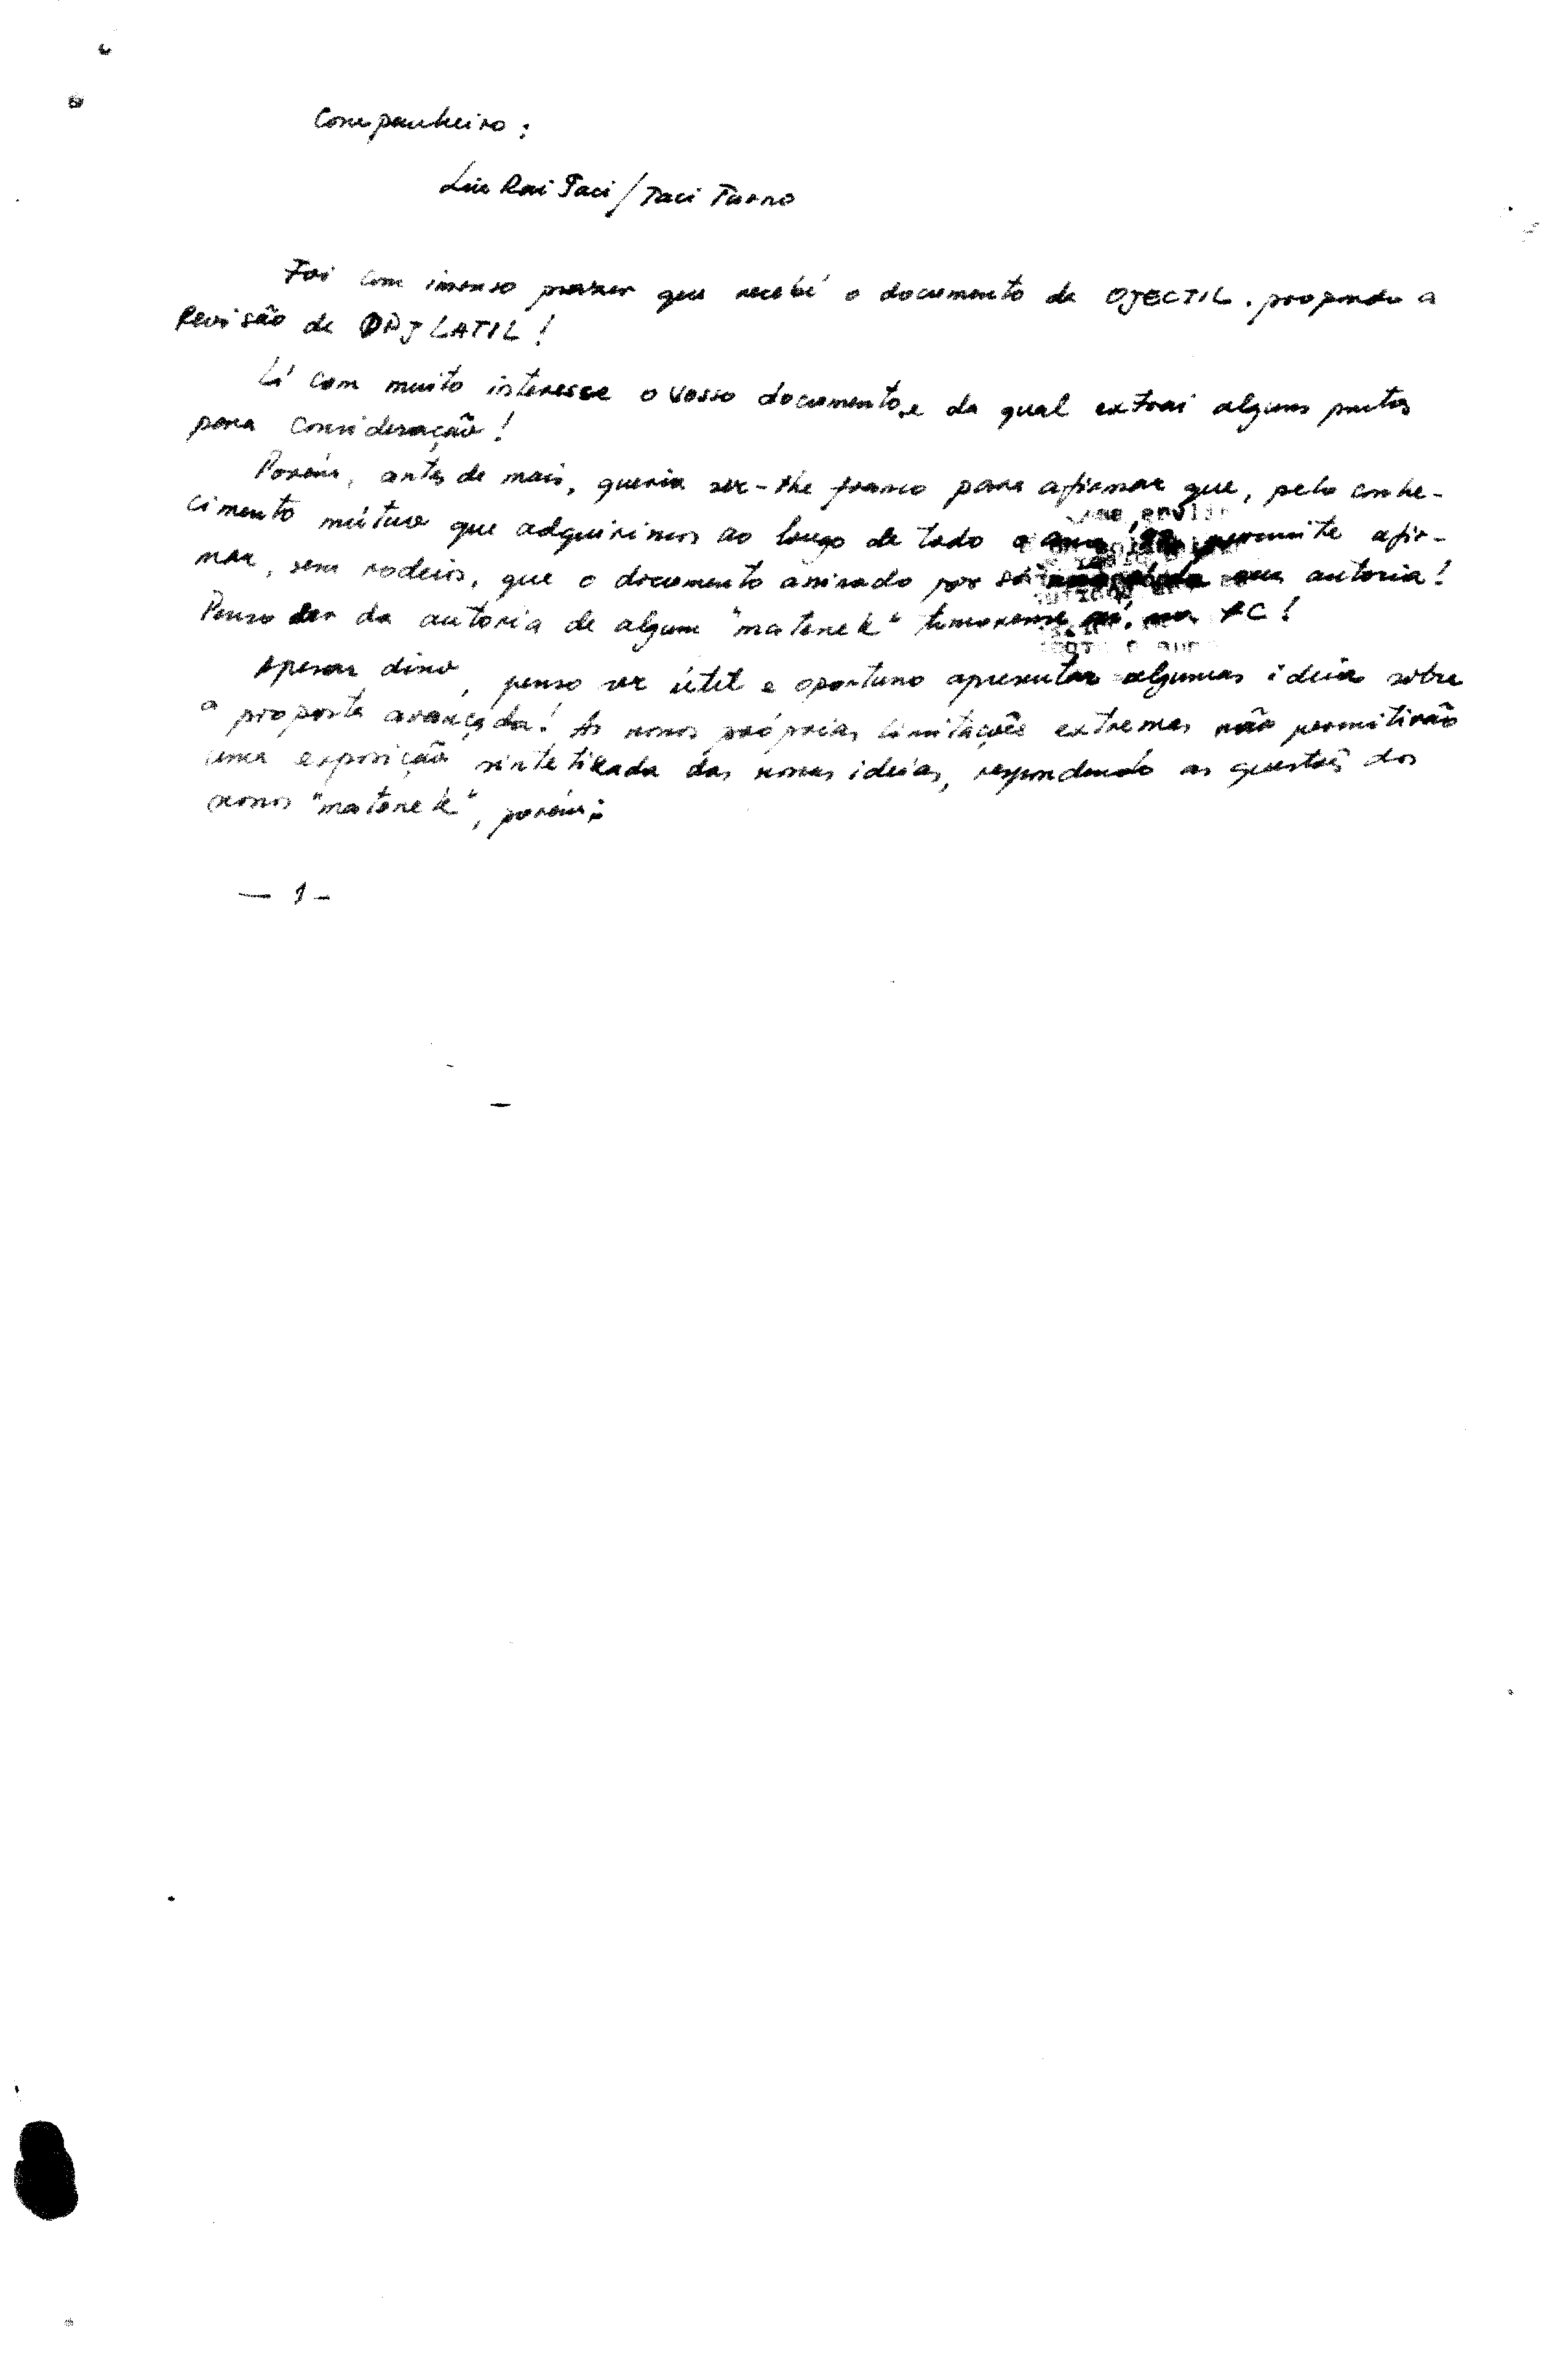 Companheiro:
Lu Rai Taci/Taci Turno
Foi com imenso prazer que recebi o documento da OJECTIL. propondo a
Revisão de OPJLATIL!
Li com muito interesse o vosso documento, e da qual extrai alguns pontos
para consideração!
Porém, antes de mais, queria ser-lhe franco para afirmar que, pelo conhe-
cimento mútuo que adquirimos ao longo de todo o permite afir-
mar, sem rodeios, que o documento assinado por si sua autoria!
Penso ser da autoria de algum "matenek" timorense RC!
Apesar disso, penso ser útil e oportuno apresentar algumas ideias sobre
a proposta avançada! As nossas próprias limitações extremas não permitirão
uma exposição sintetizada das nossas ideias, respondendo as questões dos
nossos "matenek", porém:
— 1 -